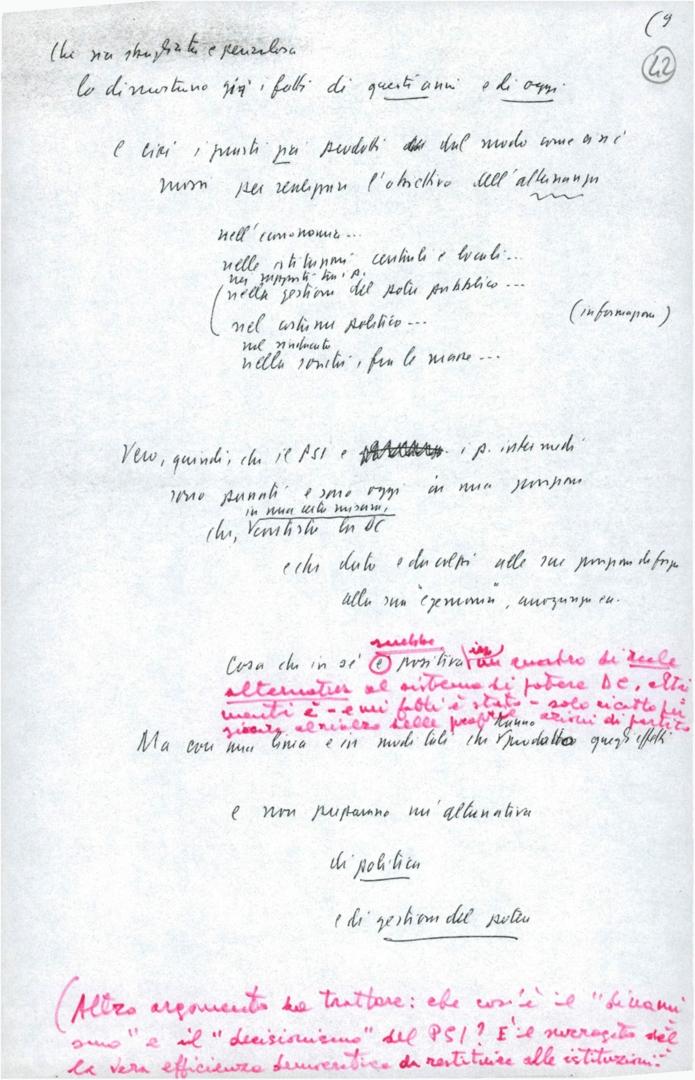 (9
42
che sia sbagliata e pericolosa
lo dimostrano già i fatti di questi anni e di oggi.
e cioè i guasti già prodotti dal modo come ci si è
mossi per realizzare l'obiettivo dell'alternanza
nell'economia...
nelle istituzioni centrali e locali...
nei rapporti tra i p.
(nella gestione del potere pubblico...
nel costume politico... (informazione)
nel sindacato
nella società, fra le masse...
Vero, quindi, che il PSI e i p. intermedi
sono passati e sono oggi in una posizione
in una certa misura,
che, contiste la DC
e che dato e da colpi alle sue posizioni di forza
alla sua "egemonia", anogunque ea.
sarebbe
Cosa che in sé è positiva in un quadro di reale
alternativa al sistema di potere DC, altri
menti è - e nei fatti è stato - solo ricatto per
giocare al rialzo delle proprie azioni di partito
Ma con una linea e in modi tali che hanno prodotto quegli effetti
e non preparano un'alternativa
di politica
e di gestione del potere
(Altro argomento da trattare: che cos'è il "dinami
smo" e il "decisionismo" del PSI? È il surrogato del
la vera efficienza democratica da restituire alle istituzioni.